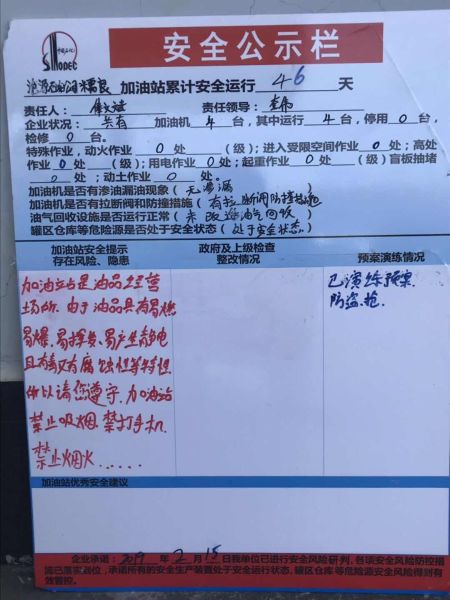 中国石化
SINOPEC
安全公示栏
加油站累计安全运行 46 天
责任人: 责任领导: 李伟
企业状况: 共有 加油机 4 台,其中运行 4 台,停用 0 台,
检修 0 台。
特殊作业,动火作业 0 处、(级);进入受限空间作业 0 处;高处
作业 0 处、(级);用电作业 0 处;起重作业 0 处、(级)盲板抽堵
0 处;动土作业 0 处。
加油机是否有渗油漏油现象(无渗漏)
加油机是否有拉断阀和防撞措施(有拉断阀防撞措施)
油气回收设施是否运行正常(未改造油气回收)
罐区仓库等危险源是否处于安全状态(处于安全状态)
加油站安全提示
存在风险、隐患
加油站是油品经营
场所.由于油品具有易燃
易爆、易挥发、易产生静电
且有毒又有腐蚀性等特性
所以请您遵守.加油站
禁止吸烟 禁打手机
禁止烟火......
政府及上级检查
整改情况
预案演练情况
已演练预案
防盗.抢.
加油站优秀安全建议
企业承诺: 2019 年 2 月 15 日我单位已进行安全风险研判,各项安全风险防控措
施已落实到位,承诺所有的安全生产装置处于安全运行状态,罐区仓库等危险源安全风险得到有
效管控。